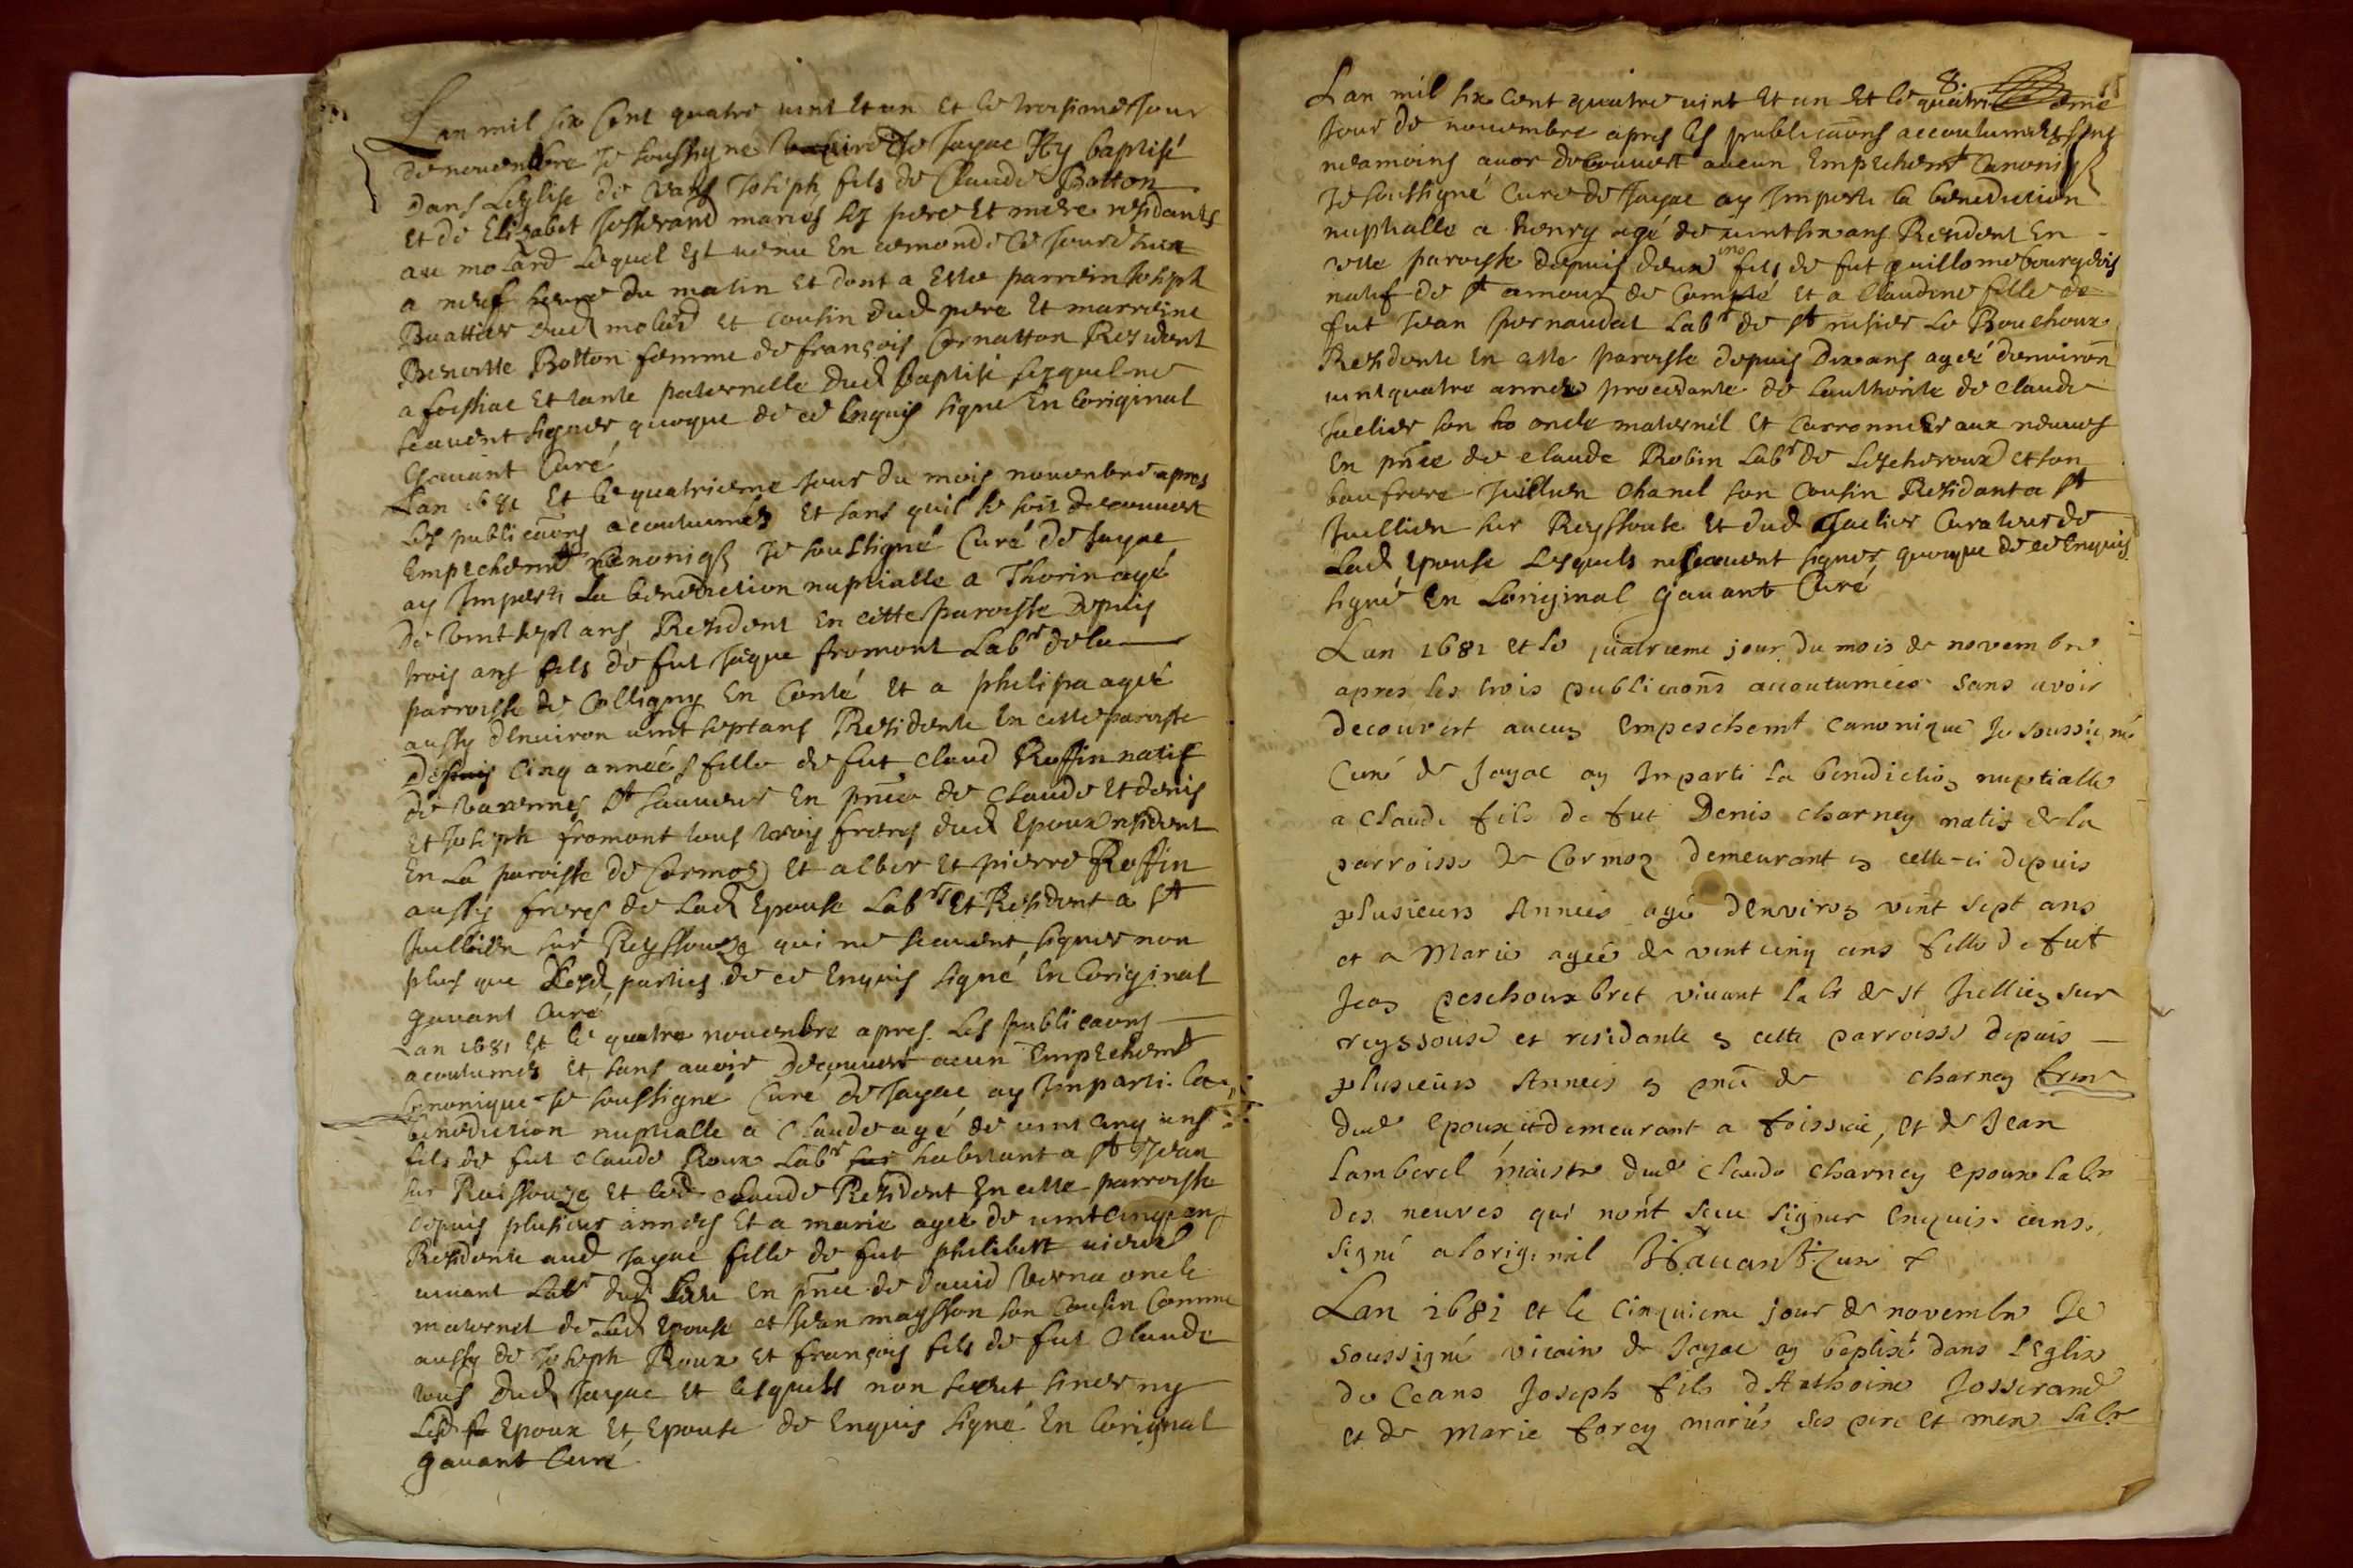 Lan mil six Cent quatre uint et un et le troisiime Jour
de nouembre Je soussigné de Jayac Ay baptisé
dans Leglise de Ceans Joseph fils de Claude Botton
et de Elizabet Josserand maries ses pere et mere residants
au molard lequel est uenu En ce monde Ce Jourdhuy
a neuf heure du matin et dont a Este parrein Joseph
Buattier dud molard et cousin dud pere et marreine
Benoitte Botton femme de françois Cornatton Resident
a foissiac et tante paternelle dud baptisé lesquel ne
scauent signer quoyque de ce enquis signé En Loriginal
Gauant Curé
Lan 1681 et le quatrieme Jour du mois nouembre apres
Les publicaons acoutumés et sans quil se soit decouuert
Empechemt Canoniq Je soussigné Curé de Jayac
ay Imparti La benediction nuptialle a Thorin agé
de vint sept ans Resident en cette paroisse depuis
trois ans fils de fut Jaque fromont Labr de la
parroisse de Colligny En Conté et a philipa ageé
aussy denuiron uint sept ans Residente En cette paroisse
depuis cinq années fille de fut Claud Roffin natif
de Varennes St sauueur En pnce de Claude et denis
et Joseph fromont tous trois freres dud Epoux resident
En La paroisse de Cormoz et alber et pierre Roffin
aussy freres de Lad Epouse Labrs et Resident a St
Jullien sur Reyssouze qui ne scauent signer non
plus que Lesd parties de ce Enquis signé En Loriginal
gauant Curé
Lan 1681 et le quatre nouembre apres Les publicaons
acoutumes et sans auoir decouuert acun Empechemt
Canonique Je soussigné Curé de Jayac ay Imparti la
benediction nuptialle a Claude agé de uint cinq ans
fils de fut Claude Roux Labr sur habitant a St Jean
sur Raissouze et led claude Resident En cette parroisse
depuis plusieur années et a marie ageé de uint cinq ans
Residente aud Jayac fille de fut philibert
uiuant Labr dud Lieu En pnce de dauid Verna oncle
maternel de lad Epouse et Jean maysson son Cousin Comme
aussy de Joseph Roux et françois fils de fut Claude
tous dud Jayac et lesquels non sceut siner ny
Lesd Epoux et Epouse de Enquis signé En Lorignal
gauant Curé
8.
Lan mil six Cent quatre uint et un et le quatri eme
Jour de nouembre apres les publicaons accoutumées sans
neamoins auoir decouuert aucun Empechemt Canoniq
Je soussigné Curé de Jayac ay Imparti la benediction
nuptialle a henry agé de uint six ans Resident En
cette paroisse depuis deux ans fils de fut guillome bourgeois
natif de St amour de Compté et a Claudine fille de
fut Jean pernaudat Labr de St nisier Le Bouchoux
Residente En cette paroisse depuis Dix ans ageé denuiron
uint quatre années procedante de Lauthorite de Claude
Juclier son oncle maternel et Carronnier aux neuues
En pnce de Claude Robin Labr de Lescheroux et son
beau frere Jullien Chanel son Cousin Residant a St
Jullien sur Reyssouze et dud Juclier Curateur de
Lad Epouse Lesquels ne scauent signer quoique de ce Enquis
signé En Loriginal Gauant Curé
Lan 1681 et le quatrieme jour du mois de novembre
apres les trois publicaons accoutumées sans avoir
decouvert aucun Empeschemt canonique Je soussigné
Curé de Jayac ay Imparti la benediction nuptialle
a Claude fils de fut Denis Charney natif de la
parroisse de Cormoz demeurant en celle-ci depuis
plusieurs Années agé denviron vint sept ans
et a Marie ageé de vint cinq ans fille de fut
Jean peschoux bret vivant labr de St Jullien sur
reyssouse et residante en cette parroisse depuis
plusieurs Années en pnce de charney frere
dud epoux demeurant a foissiac, et de Jean
lamberel maistre dud Claude Charney epoux labr
des neuves qui nont sceu signer enquis ceans.
signé a loriginal Gauant Curé
Lan 1681 et le cinquieme jour de novembre Je
soussigné vicaire de Jayac ay baptisé dans LEglise
de Ceans Joseph fils dAnthoine Josserand
et de Marie forey mariés ses pere et mere labr